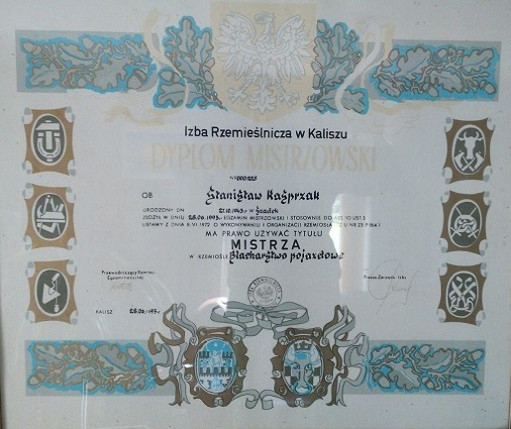 Izba Rzemieślnicza w Kaliszu
DYPLOM MISTRZOWSKI
OB Stanisław Kaśprzak
URODZONY DN. w Szadek
ZDAŁ W DNIU 28.06.1993r. EGZAMIN MISTRZOWSKI I STOSOWNIE DO ART. UST.
USTAWY Z DNIA 8.VI.1972 O WYKONYWANIU I ORGANIZACJI RZEMIOSŁA
MA PRAWO UŻYWAĆ TYTUŁU
MISTRZA
W RZEMIOŚLE Blacharstwo pojazdowe
Przewodniczący Komisji
Egzaminacyjnej
Prezes Zarządu Izby
KALISZ